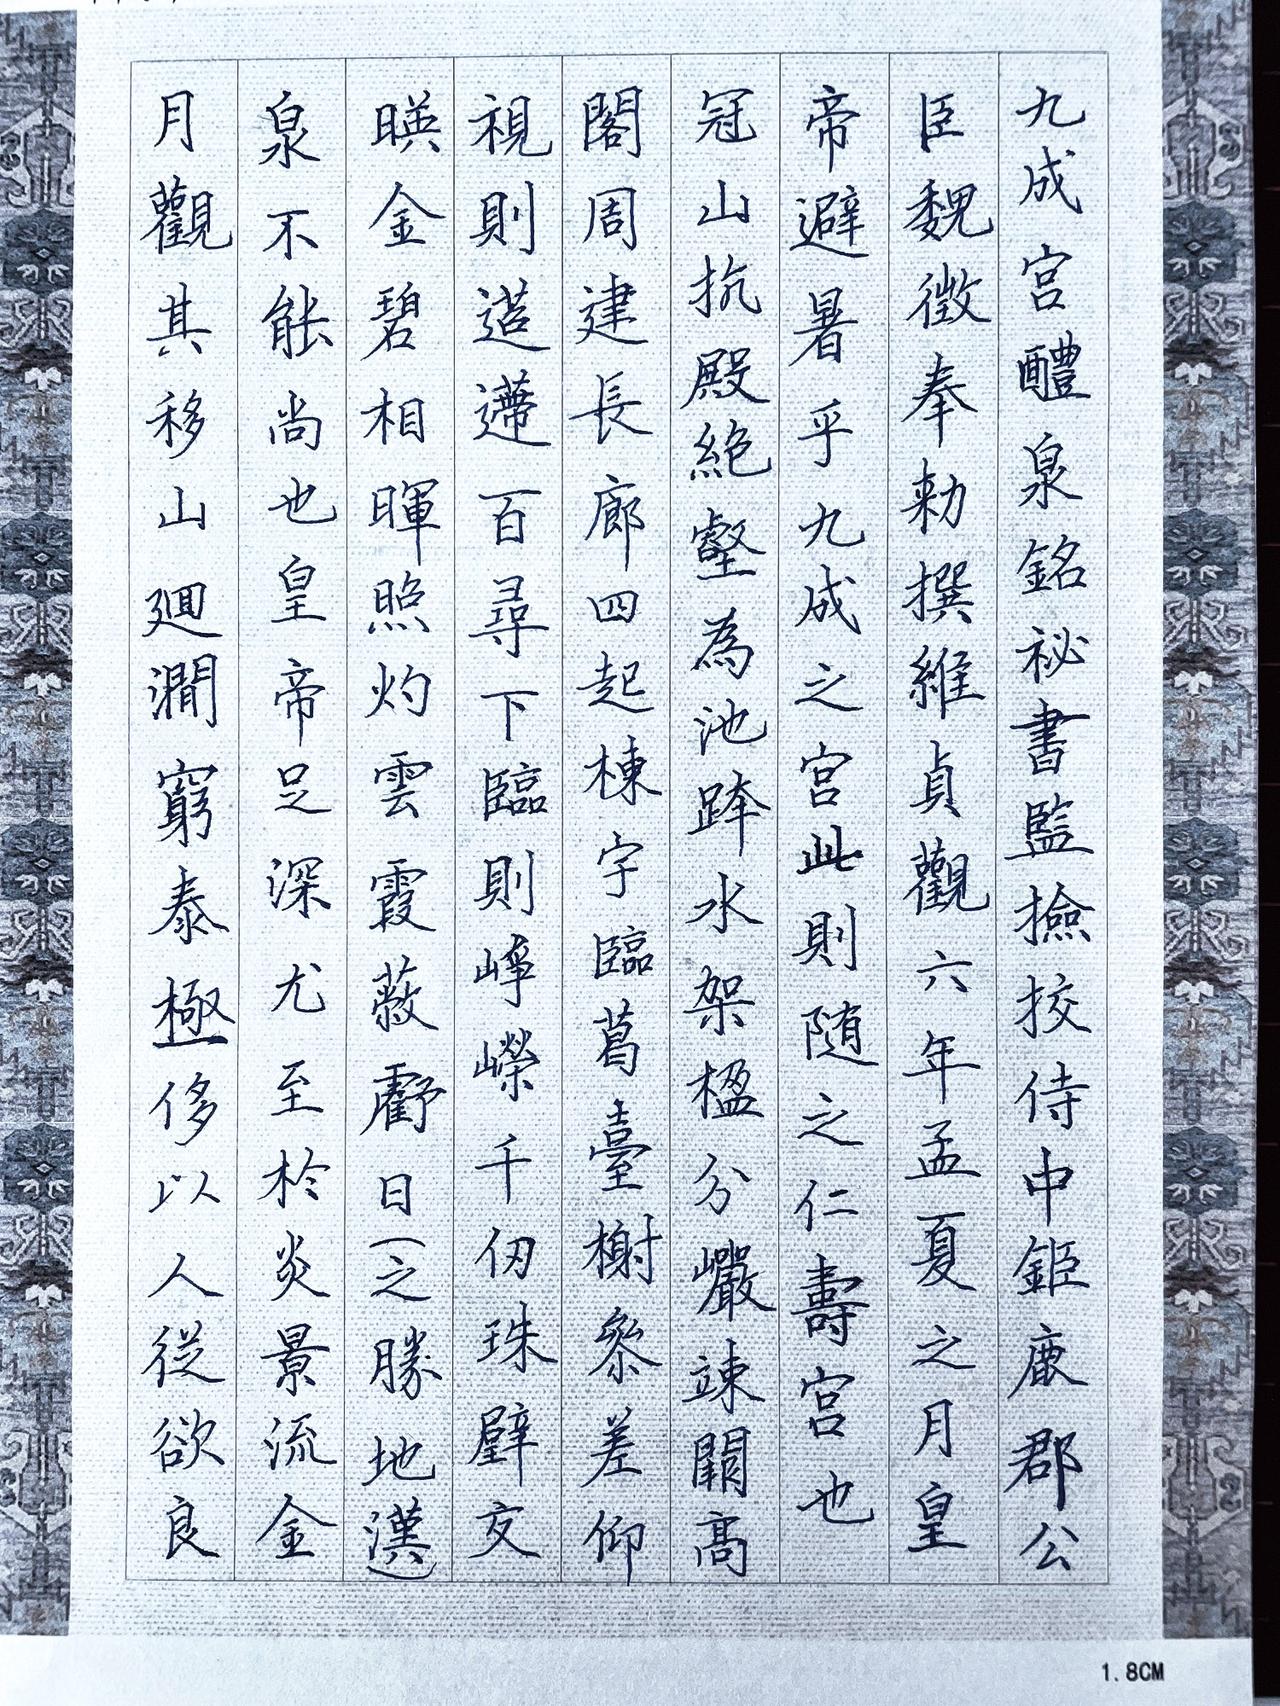 九成宮醴泉銘祕書監撿挍侍中鉅鹿郡公
臣魏徵奉勅撰維貞觀六年孟夏之月皇
帝避暑乎九成之宮此則随之仁壽宮也
冠山抗殿絶壑為池跨水架楹分巖竦闕高
閣周建長廊四起棟宇臨葛臺榭叅差仰
視則迢遰百尋下臨則崢嶸千仞珠璧交
暎金碧相暉照灼雲霞蔽虧日(之勝地漢)
泉不能尚也皇帝足深尤至於炎景流金
月觀其移山廻澗窮泰極侈以人從欲良
1.8CM